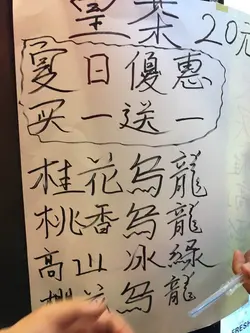 茶 20元
夏日優惠
买一送一
桂花烏龍
桃香烏龍
高山冰綠
烏龍
FRESH